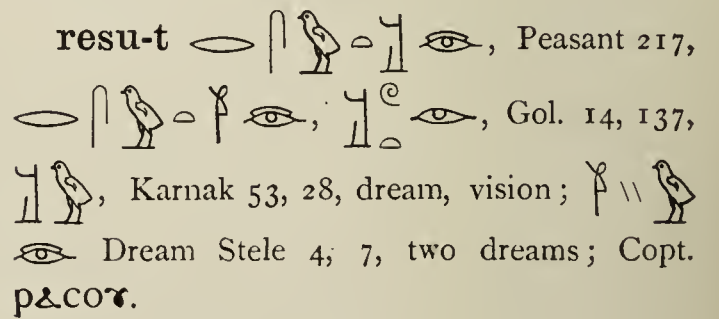 resu-t 𓂋𓋴𓅱𓏏𓌚𓁹, Peasant 217,
𓂋𓋴𓅱𓏏𓁹, 𓌚𓏲𓏏𓁹, Gol. 14, 137,
𓌚𓅱, Karnak 53, 28, dream, vision; 𓏭𓅱
𓁹 Dream Stele 4, 7, two dreams; Copt.
ⲣⲁⲥⲟⲩ.